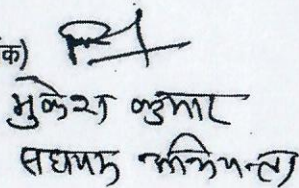 क)
मुकेश कुमार
सहायक अभियन्ता